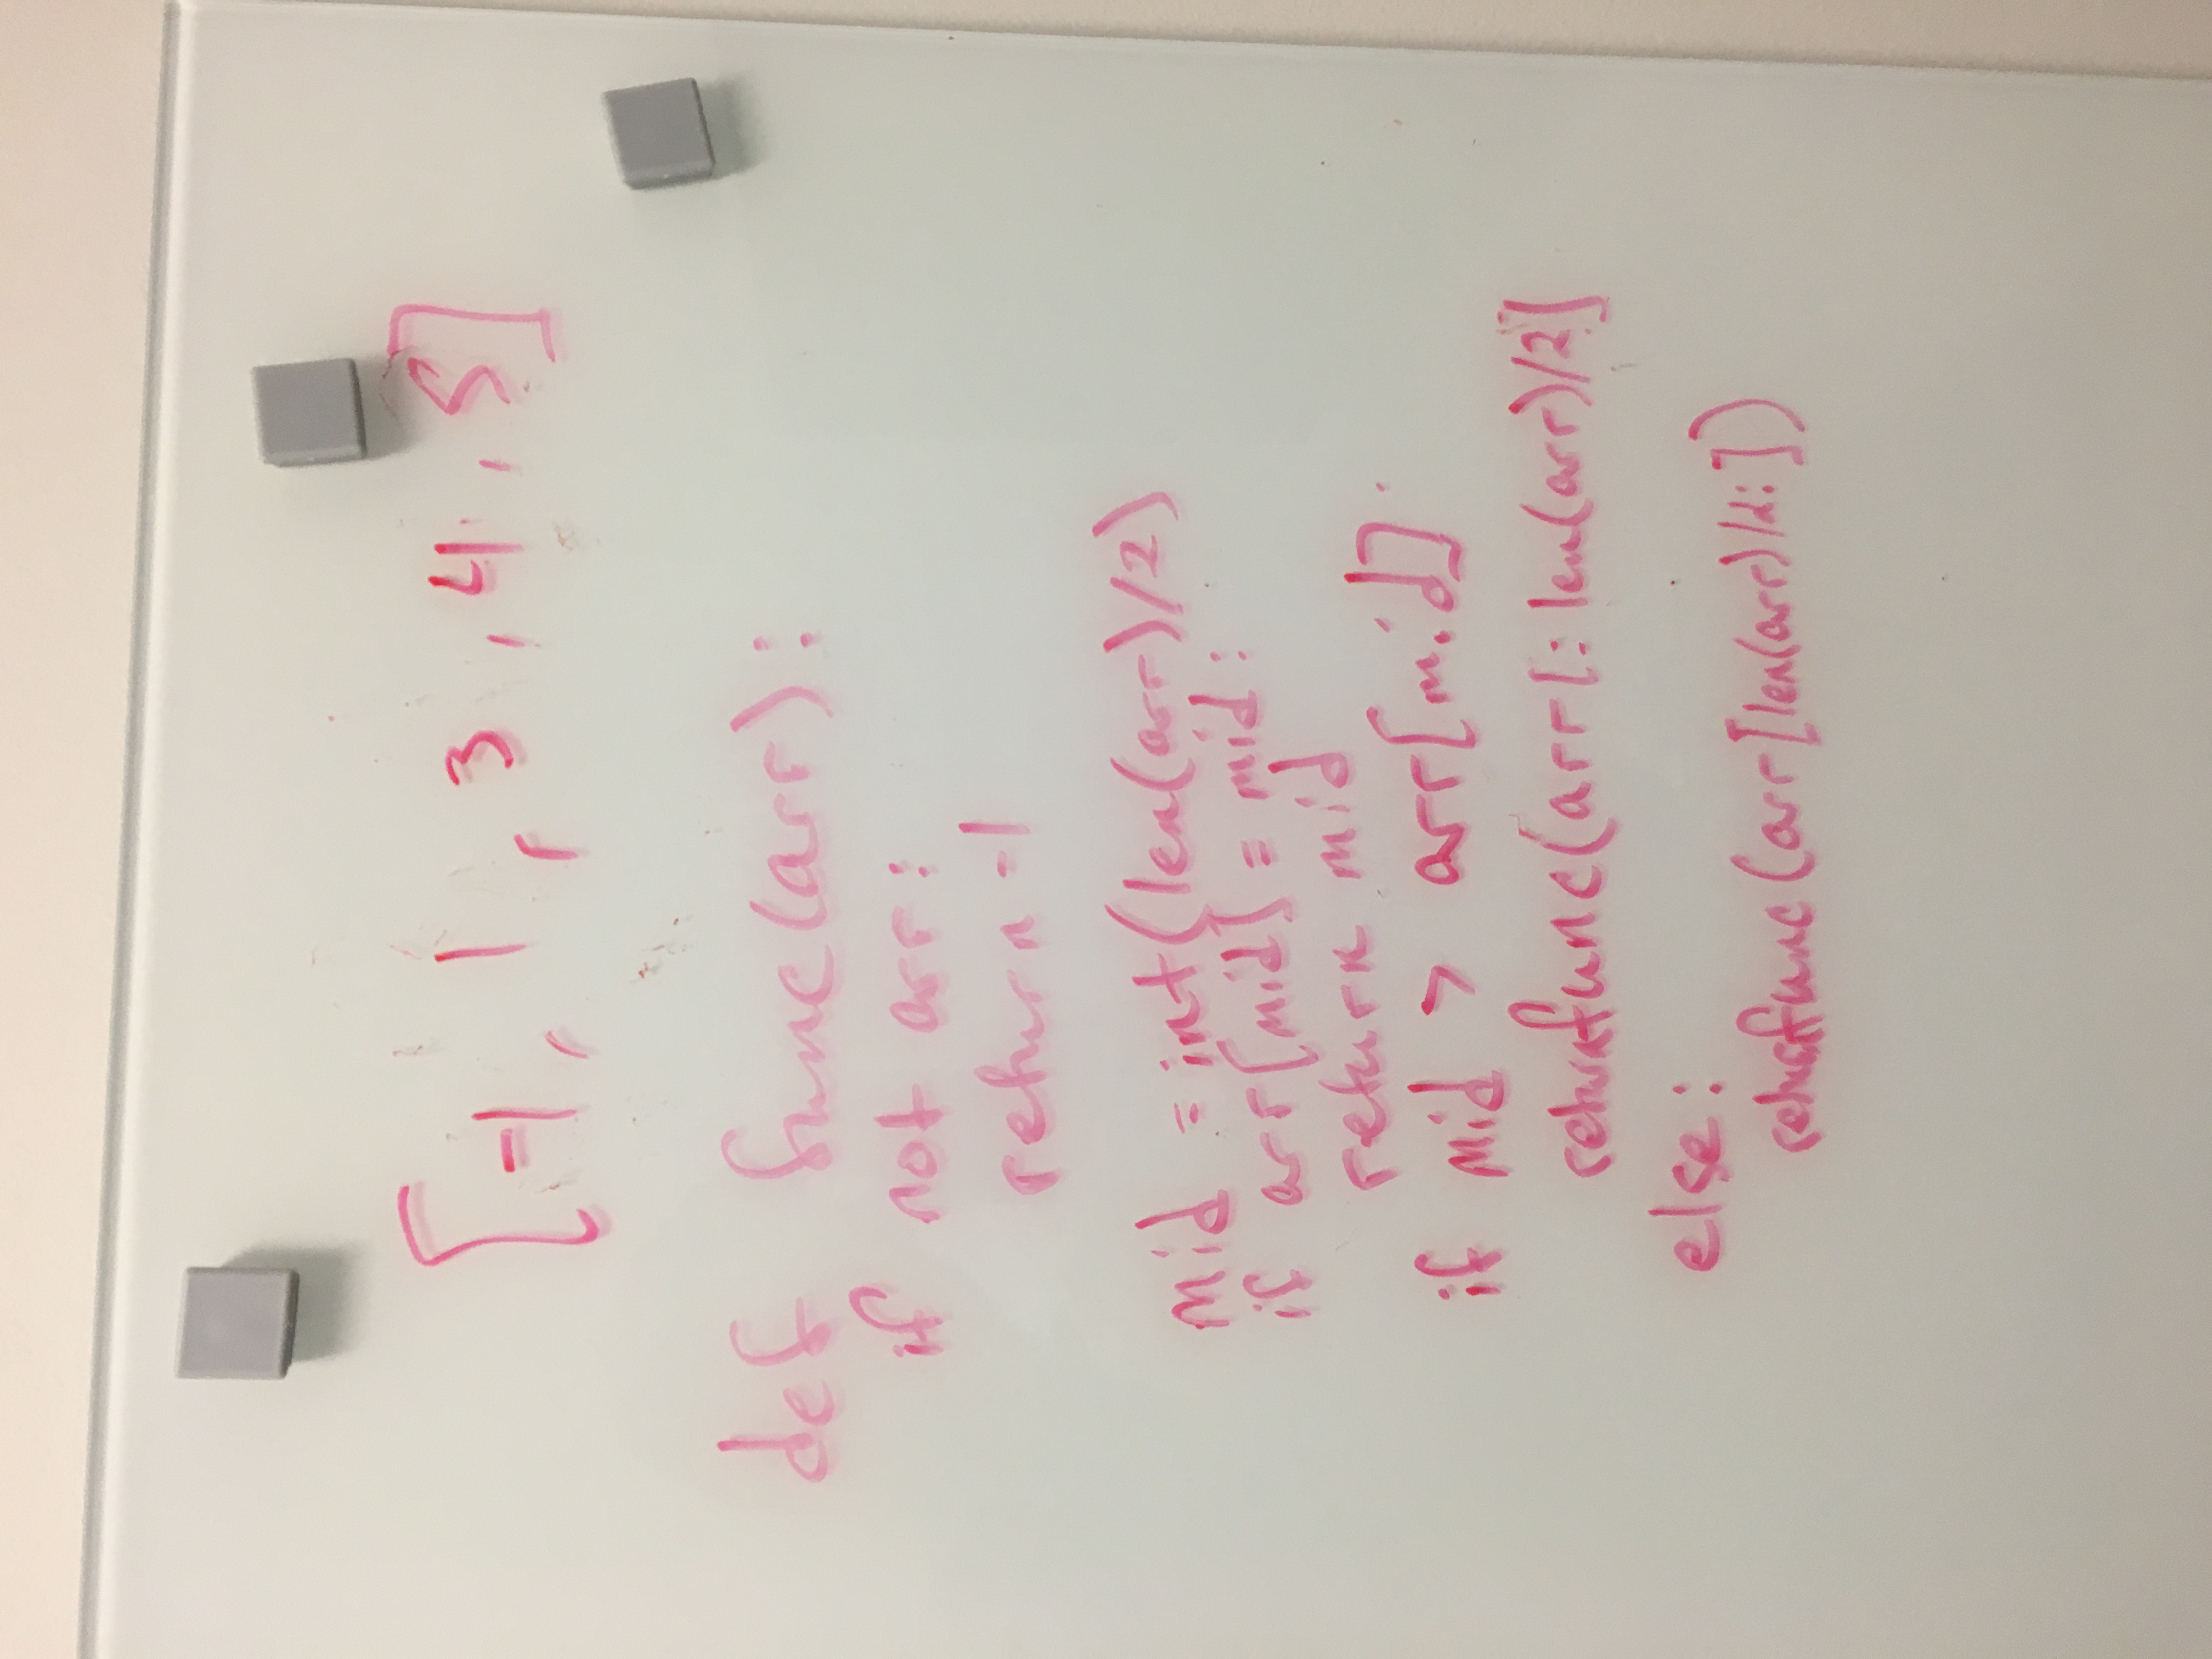 [-1, 1, 3, 4, 5]
def func(arr):
if not arr:
return -1
mid = int(len(arr)/2)
if arr[mid] = mid:
return mid
if mid > arr[mid]:
return func(arr[:len(arr)/2]
else:
return func(arr[len(arr)/2:])